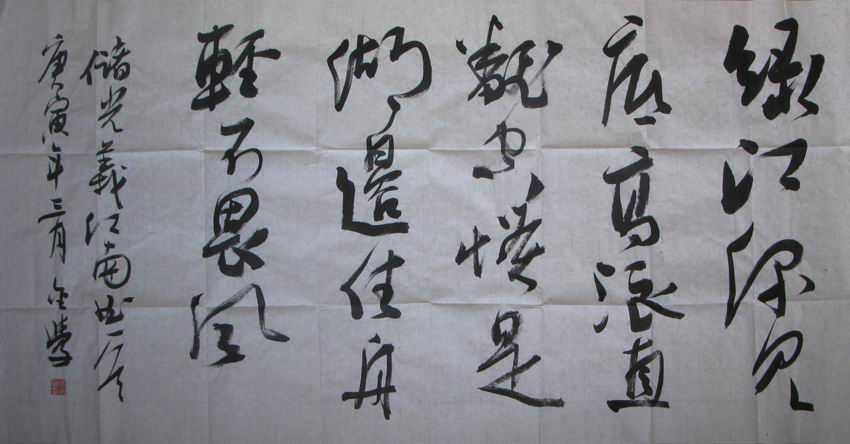 绿江深见
底高浪直
翻空惯是
湖邊住舟
輕不畏风
儲光義江南曲一首
庚寅年三月